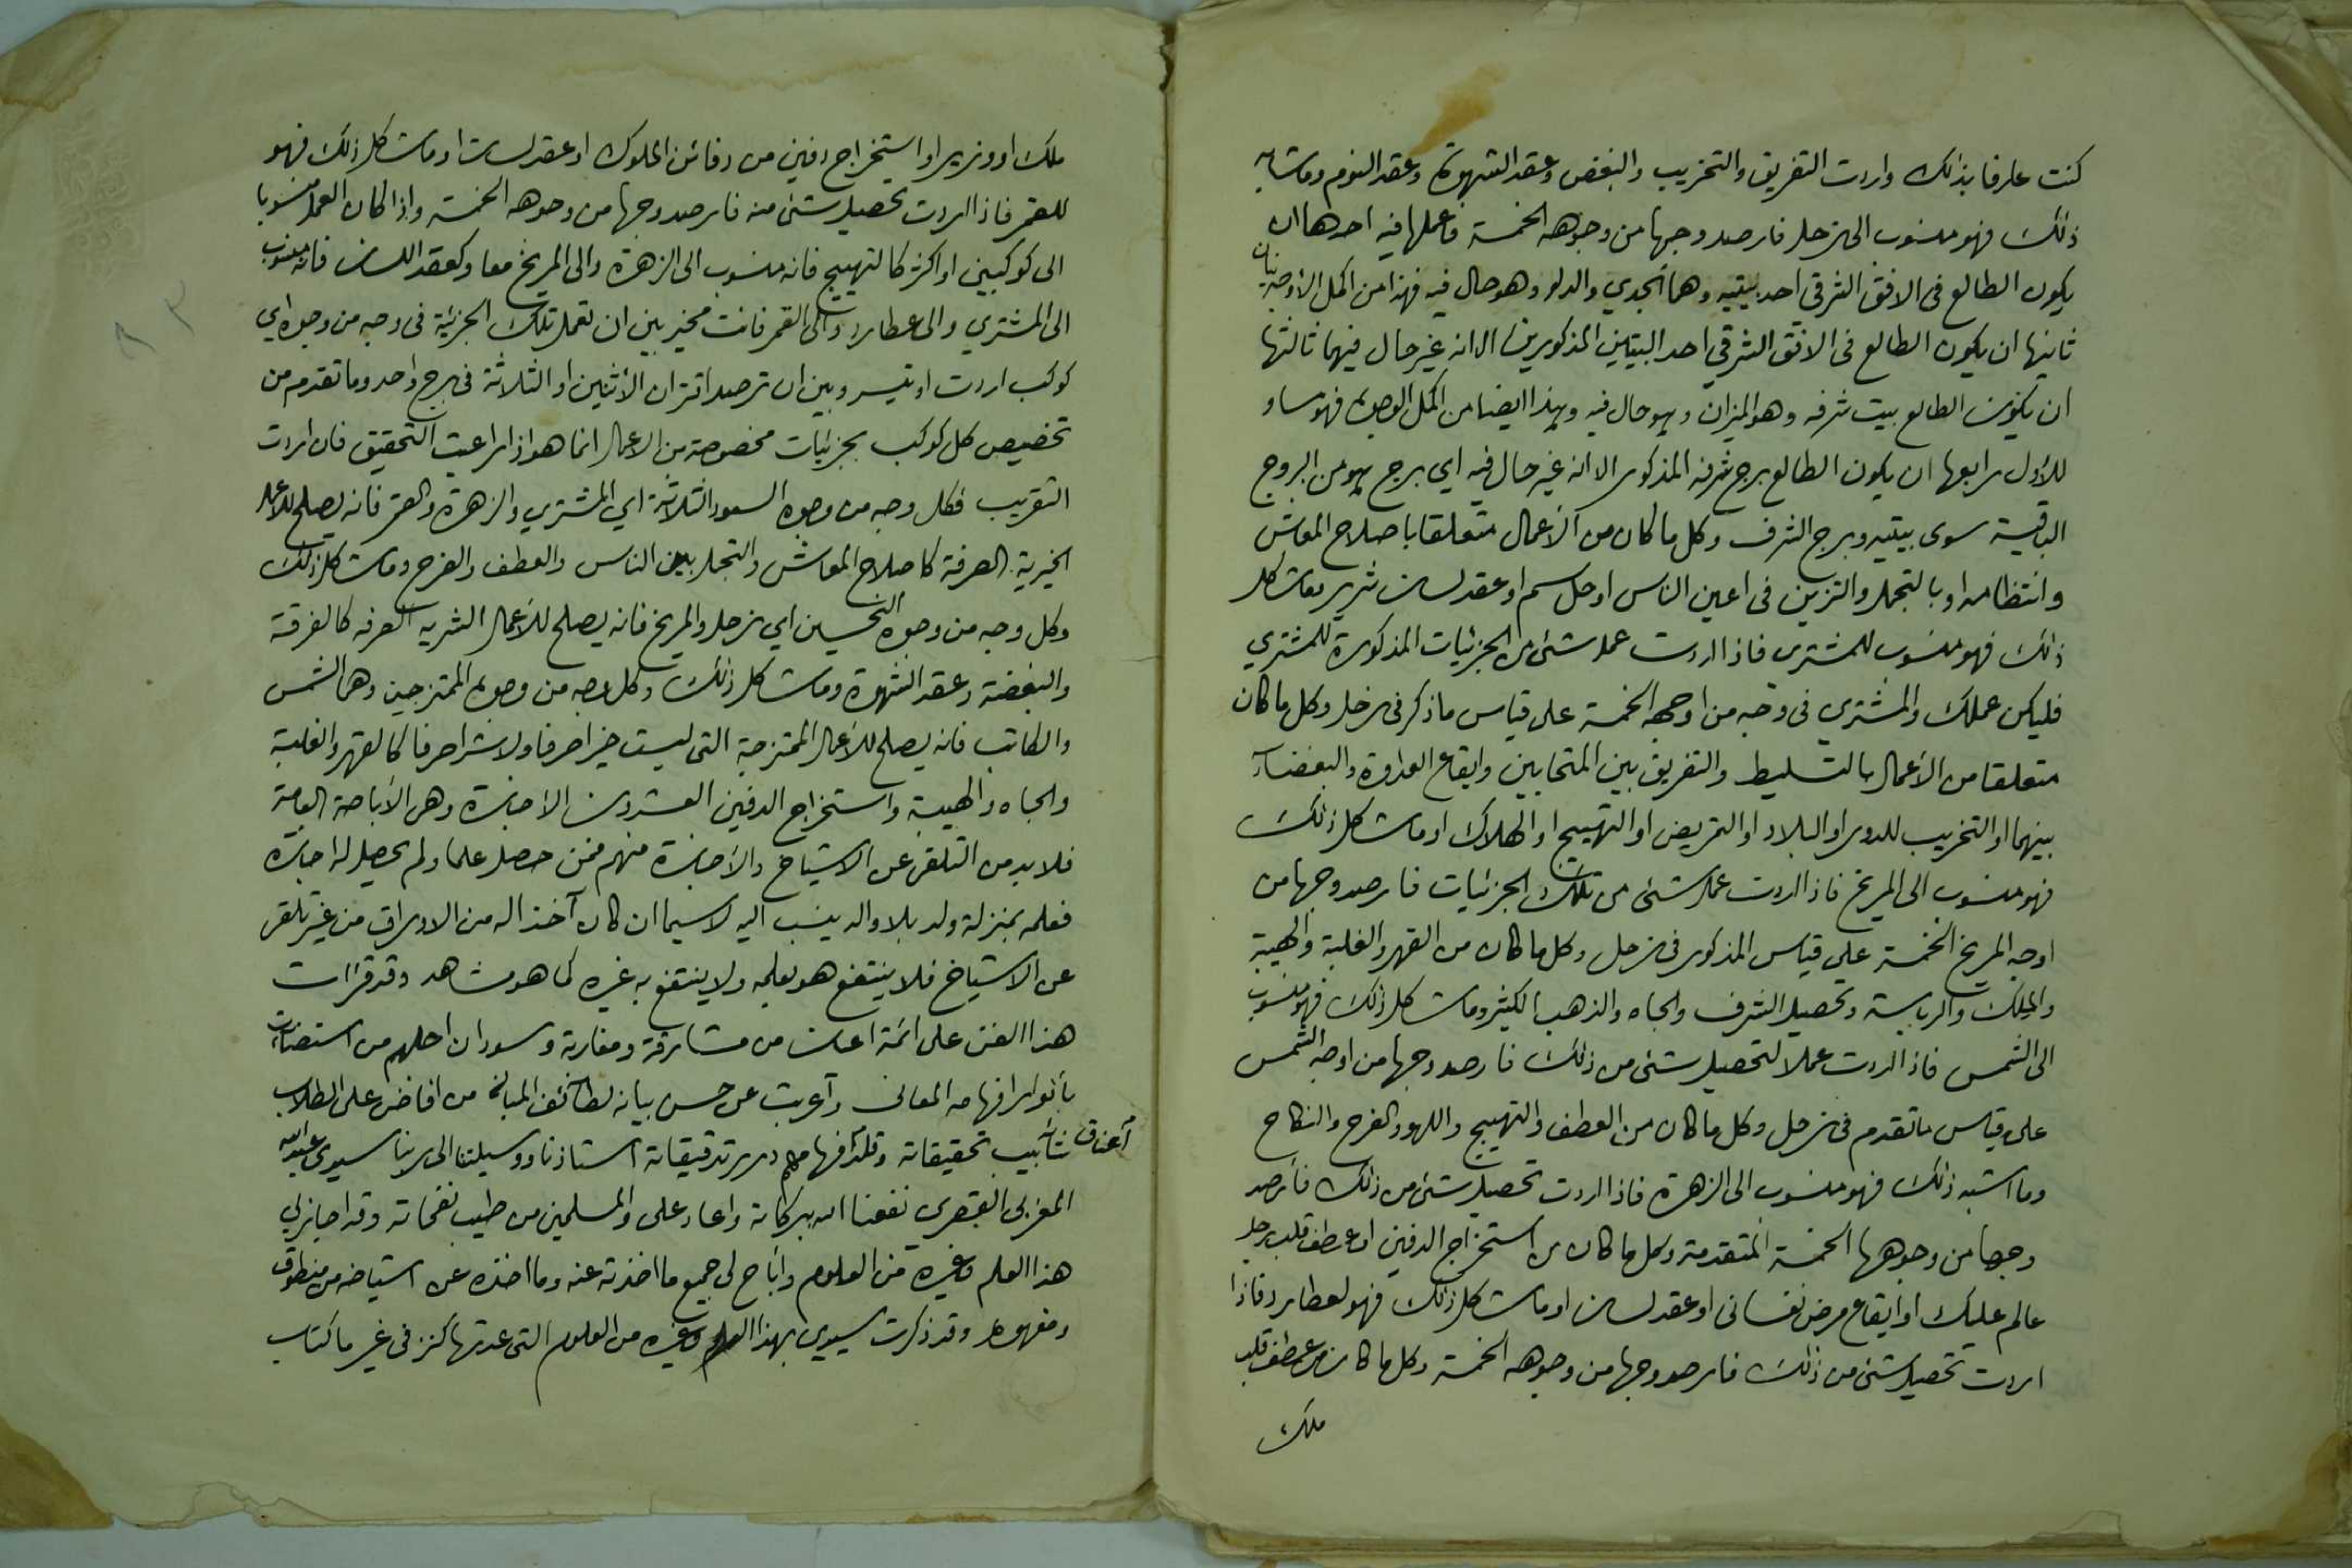 كنت عارفا بذلك واردت التفريق والتخريب والبغض وعقد الشهوة وعقد النوم وماشابه
ذلك فهو منسوب الى زحل فارصد وجها من وجوهه الخمسة فاعملها فيه احدها ان
يكون الطالع فى الافق الشرقي احد بيتيه وهما الجدي والدلو وهو حال فيه فهذا من اكمل الاوجه
ثانيها ان يكون الطالع فى الافق الشرقي احد البيتين المذكورين الا انه غير حال فيهما ثالثها
ان يكون الطالع بيت شرفه وهو الميزان وهو حال فيه وهذا ايضا من اكمل الوجوه فهو مساو
للاول رابعها ان يكون الطالع برج شرفه المذكور الا انه غير حال فيه اي برج هو من البروج
الباقية سوى بيتيه وبرج الشرف وكل ما كان من الأعمال متعلقا باصلاح المعاش
وانتظامه او بالتجمل والتزين فى اعين الناس او حل سم او عقد لسان شرير وماشاكل
ذلك فهو منسوب للمشتري فاذا اردت عمل شئ من الجزئيات المذكورة للمشتري
فليكن عملك والمشتري فى وجه من اوجهه الخمسة على قياس ما ذكر فى زحل وكل ما كان
متعلقا من الأعمال بالتسليط والتفريق بين المتحابين وايقاع العداوة والبغضاء
بينهما او التخريب للدور او البلاد او التمريض او التهييج او الهلاك او ماشاكل ذلك
فهو منسوب الى المريخ فاذا اردت عمل شئ من تلك الجزئيات فارصد وجها من
اوجه المريخ الخمسة على قياس المذكور فى زحل وكل ما كان من القهر والغلبة والهيبة
والملك والرياسة وتحصيل الشرف والجاه والذهب الكثير وماشاكل ذلك فهو منسوب
الى الشمس فاذا اردت عملا لتحصيل شئ من ذلك فارصد وجها من اوجه الشمس
على قياس ماتقدم فى زحل وكل ما كان من العطف والتهييج واللهو والفرح والنكاح
وما اشبه ذلك فهو منسوب الى الزهرة فاذا اردت تحصيل شئ من ذلك فارصد
وجها من وجوهها الخمسة المتقدمة وكل ما كان من استخراج الدفين او عطف قلب رجل
عالم عليك او ايقاع مرض نفسانى او عقد لسان او ماشاكل ذلك فهو لعطارد فاذا
اردت تحصيل شئ من ذلك فارصد وجها من وجوهه الخمسة وكل ما كان من عطف قلب
ملك
ملك او وزير او استخراج دفين من دفائن الملوك او عقد لسان او ماشاكل ذلك فهو
للقمر فاذا اردت تحصيل شئ منه فارصد وجها من وجوهه الخمسة واذا كان العمل منسوبا
الى كوكبين او اكثر كالتهييج فانه منسوب الى الزهرة والى المريخ معا وكعقد اللسان فانه منسوب
الى المشتري والى عطارد والى القمر فانت مخير بين ان تعمل تلك الجزئية فى وجه من وجوه اي
كوكب اردت او تيسر وبين ان ترصد اقتران الأثنين او الثلاثة فى برج واحد وما تقدم من
تخصيص كل كوكب بجزئيات مخصوصة من الاعمال انما هو اذا راعيت التحقيق فان اردت
التقريب فكل وجه من وجوه السعود الثلاثة اي المشتري والزهرة والقمر فانه يصلح للأعمال
الخيرية الصرفة كاصلاح المعاش والتجمل بين الناس والعطف والفرح وماشاكل ذلك
وكل وجه من وجوه النحسين اي زحل والمريخ فانه يصلح للأعمال الشريه الصرفه كالفرقة
والبغضة وعقد الشهوة وماشاكل ذلك وكل وجه من وجوه الممتزجين وهما الشمس
والكاتب فانه يصلح للأعمال الممتزجة التى ليست خيرا صرفا ولا شرا صرفا كالقهر والغلبة
والجاه والهيبة واستخراج الدفين العشرون الاجازة وهى الأباحة العامة
فلا بد من التلقى عن الاشياخ والأجازة منهم فمن حصل علما ولم يحصل له اجازة
فعلمه بمنزلة ولد بلا والد ينسب اليه لاسيما ان كان آخذا له من الاوراق من غير تلقى
عن الاشياخ فلا ينتفع هو بعلمه ولا ينتفع به غيره كما هو مشاهد وقد قرات
هذا الفن على ائمة اعيان من مشارقة ومغاربة وسودان اجلهم من استضاءت
بأنوار افهامه المعانى وآعربت عن حسن بيانه لطائف المبانى من افاض على الطلاب
شآبيب تحقيقاته وقلد آعناق افهامهم درر تدقيقاته استاذنا ووسيلتنا الى ربنا سيدي عبدالله
المغربى القصرى نفعنا الله ببركاته واعاد على والمسلمين من طيب نفحاته وقد اجازنى
هذا العلم وغيره من العلوم وأباح لى جميع ما اخذته عنه وما اخذه عن اشياخه من منطوق
ومفهوم وقد ذكرت سيدي بهذا العلم وغيره من العلوم التى عدتها كنز فى غير ما كتاب